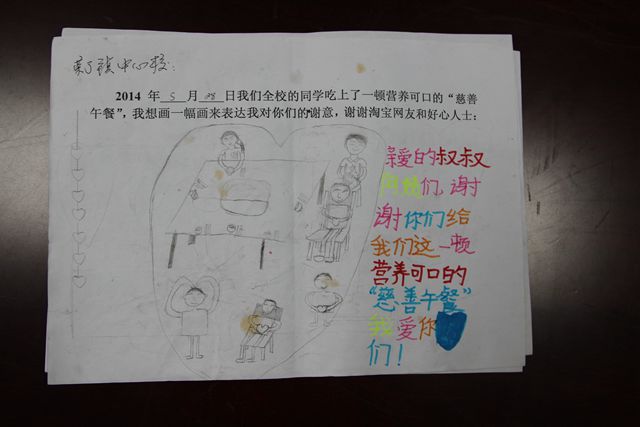 新镇中心校:
2014 年 5 月 28 日我们全校的同学吃上了一顿营养可口的“慈善
午餐”，我想画一幅画来表达我对你们的谢意，谢谢淘宝网友和好心人士：
亲爱的叔叔
阿姨们，谢
谢你们给
我们这一顿
营养可口的
“慈善午餐”
我爱你
们！